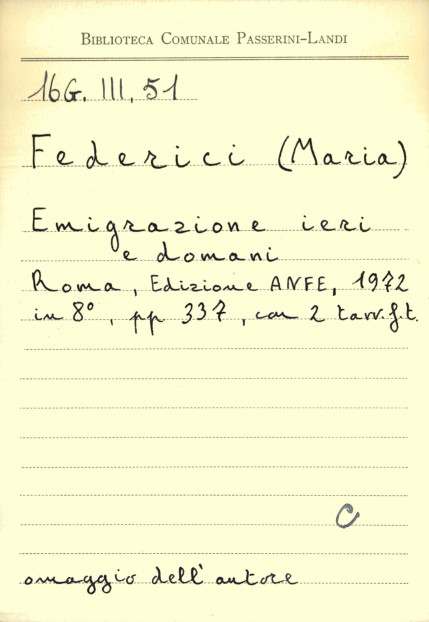 BIBLIOTECA COMUNALE PASSERINI-LANDI
16G. III. 51
Federici (Maria)
Emigrazione ieri
e domani
Roma, Edizione ANFE, 1972
in 8°, pp 337, con 2 tavv.f.t.
C
omaggio dell'autore